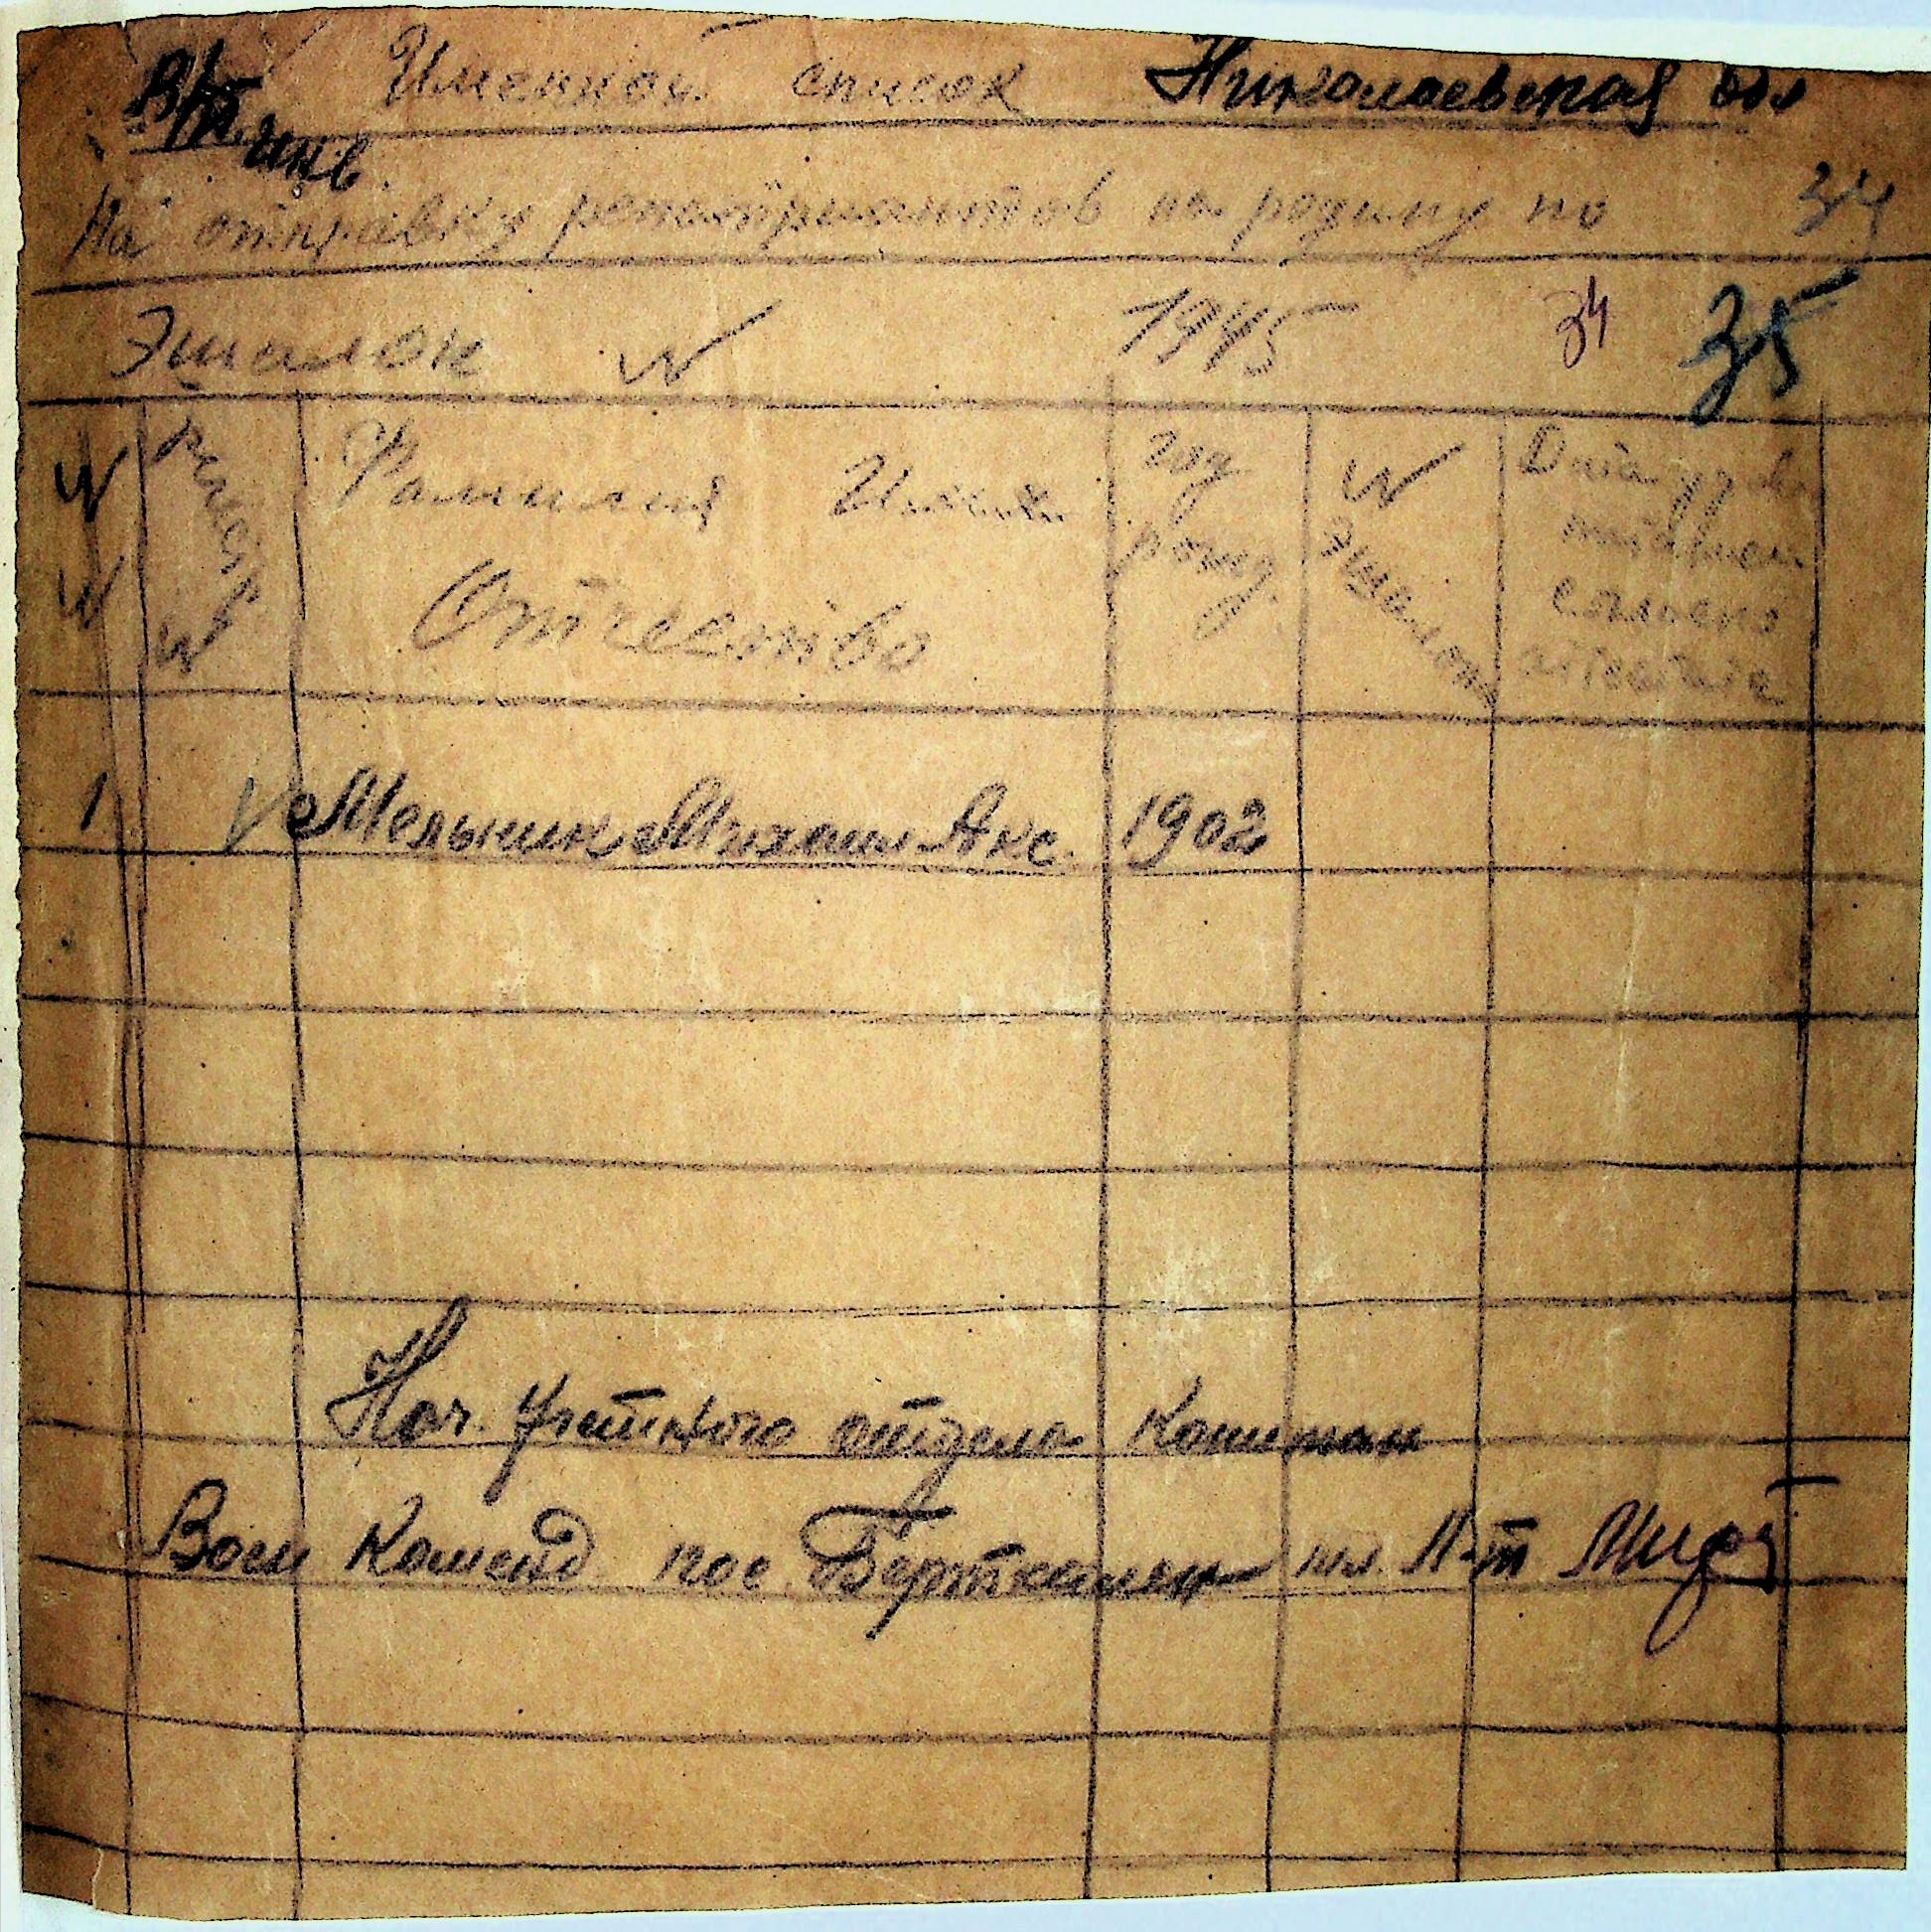 Именной список Николаевская обл
На отправку репатриантов на родину по 34
Эшалон № 1945 34 35
№ № Фамилия Имя Отчество год рожд. № Эшалона Дата
1 Мельник Михаил Акс. 1902
Нач. Учетного отдела Капитан
Воен Коменд. пос. мл. Л-т